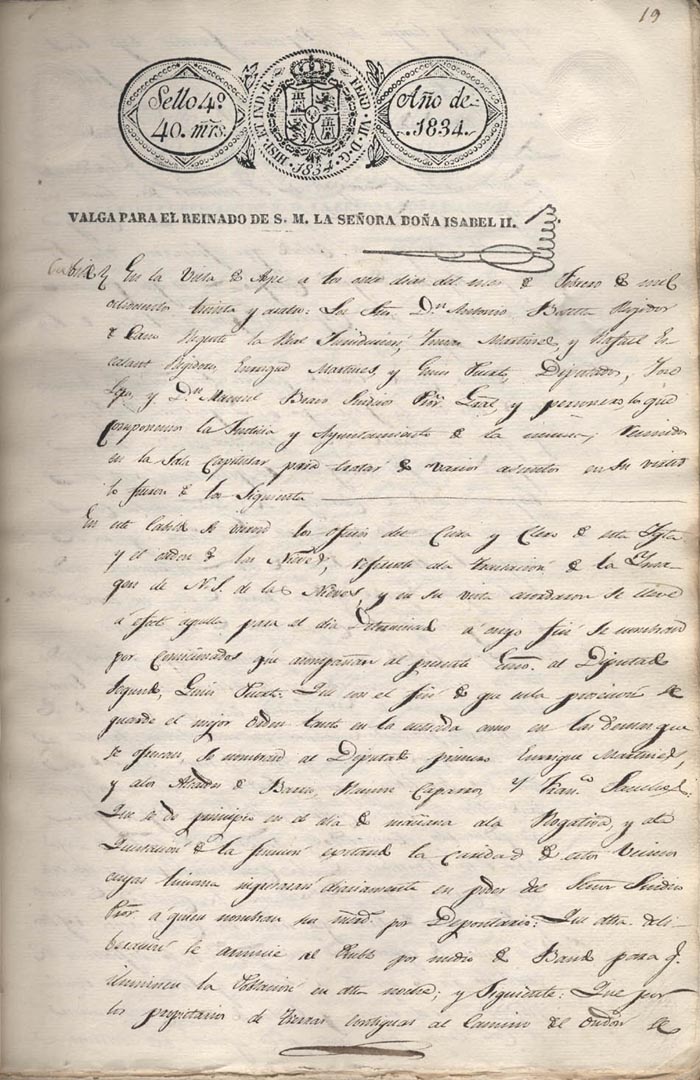 19
Sello 4º
40. mrs.
HISP. ET IND. R. FERD. VII. D. G.
1834
Año de
1834.
VALGA PARA EL REINADO DE S. M. LA SEÑORA DOÑA ISABEL II.
En la Villa de Aspe a los once dias del mes de Febrero de mil
ochocientos treinta y cuatro: Los Sres. Dn Antonio Regidor
de Cano Regente la Real Jurisdiccion, Martinez, y Rafael
Regidores, Enrique Martinez, y Gines Diputados, Jose
y Dn Manuel Sindico Pror. Gral, y personero, lo que
componemos la Justicia y Ayuntamiento de la misma, reunidos
en la Sala Capitular para tratar de varios asuntos en su virtud
lo fueron de los Siguiente
En este Cabildo se los oficios del Cura y Clero de esta Iglª
y el orden de las Nieves, referente ala traslacion de la Yma-
gen de N. S. de las Nieves, y en su vista acordaron se lleve
á efecto aquella para el dia á cuyo fin se nombrad
por Comisionados que acompañan al presente Esno. al Diputado
segundo, Que con el fin de que en la procesion se
guarde el mejor orden tanto en la entrada como en las demas que
se ofrezcan, se nombrad al Diputado primero Enrique Martinez,
y alos Alcaldes de Barrio, Ramon Caparros, y Franco. Sanchez:
Que se de principio en el dia de mañana ala Rogativa, y ala
de la funcion la caridad de estos Vecinos
cuyas limosna ingresaran diariamente en poder del Señor Sindico
Pror. a quien nombran sus mrds. por Depositario: Que esta deli-
beracion se anuncie al Publo por medio de Bando para q.
iluminen la Poblacion en esta noche, y Siguiente: Que por
los propietarios de tierras contiguas al Camino de se